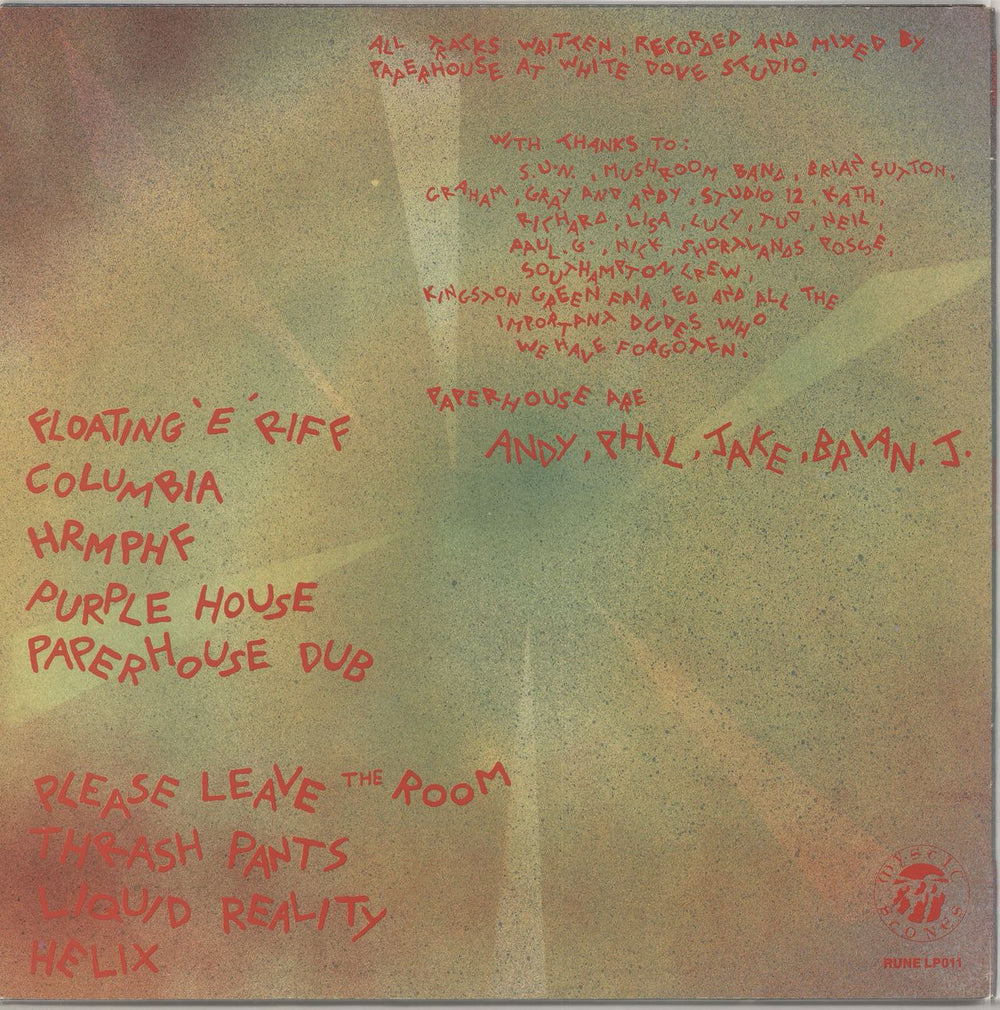 ALL TRACKS WRITTEN, RECORDED AND MIXED BY
PAPERHOUSE AT WHITE DOVE STUDIO.
WITH THANKS TO:
S.U.N., MUSHROOM BAND, BRIAN SUTTON,
GRAHAM, GRAY AND ANDY, STUDIO 12, KATH,
RICHARD, LISA, LUCY, TUD, NEIL,
PAUL.G., NICK, SHORTLANDS POSSE,
SOUTHAMPTON CREW,
KINGSTON GREEN FAIR, ED AND ALL THE
IMPORTANT DUDES WHO
WE HAVE FORGOTEN.
PAPERHOUSE ARE
ANDY, PHIL, JAKE, BRIAN. J.
FLOATING 'E' RIFF
COLUMBIA
HRMPHF
PURPLE HOUSE
PAPERHOUSE DUB
PLEASE LEAVE THE ROOM
THRASH PANTS
LIQUID REALITY
HELIX
MYSTIC
STONES
RUNE LP011